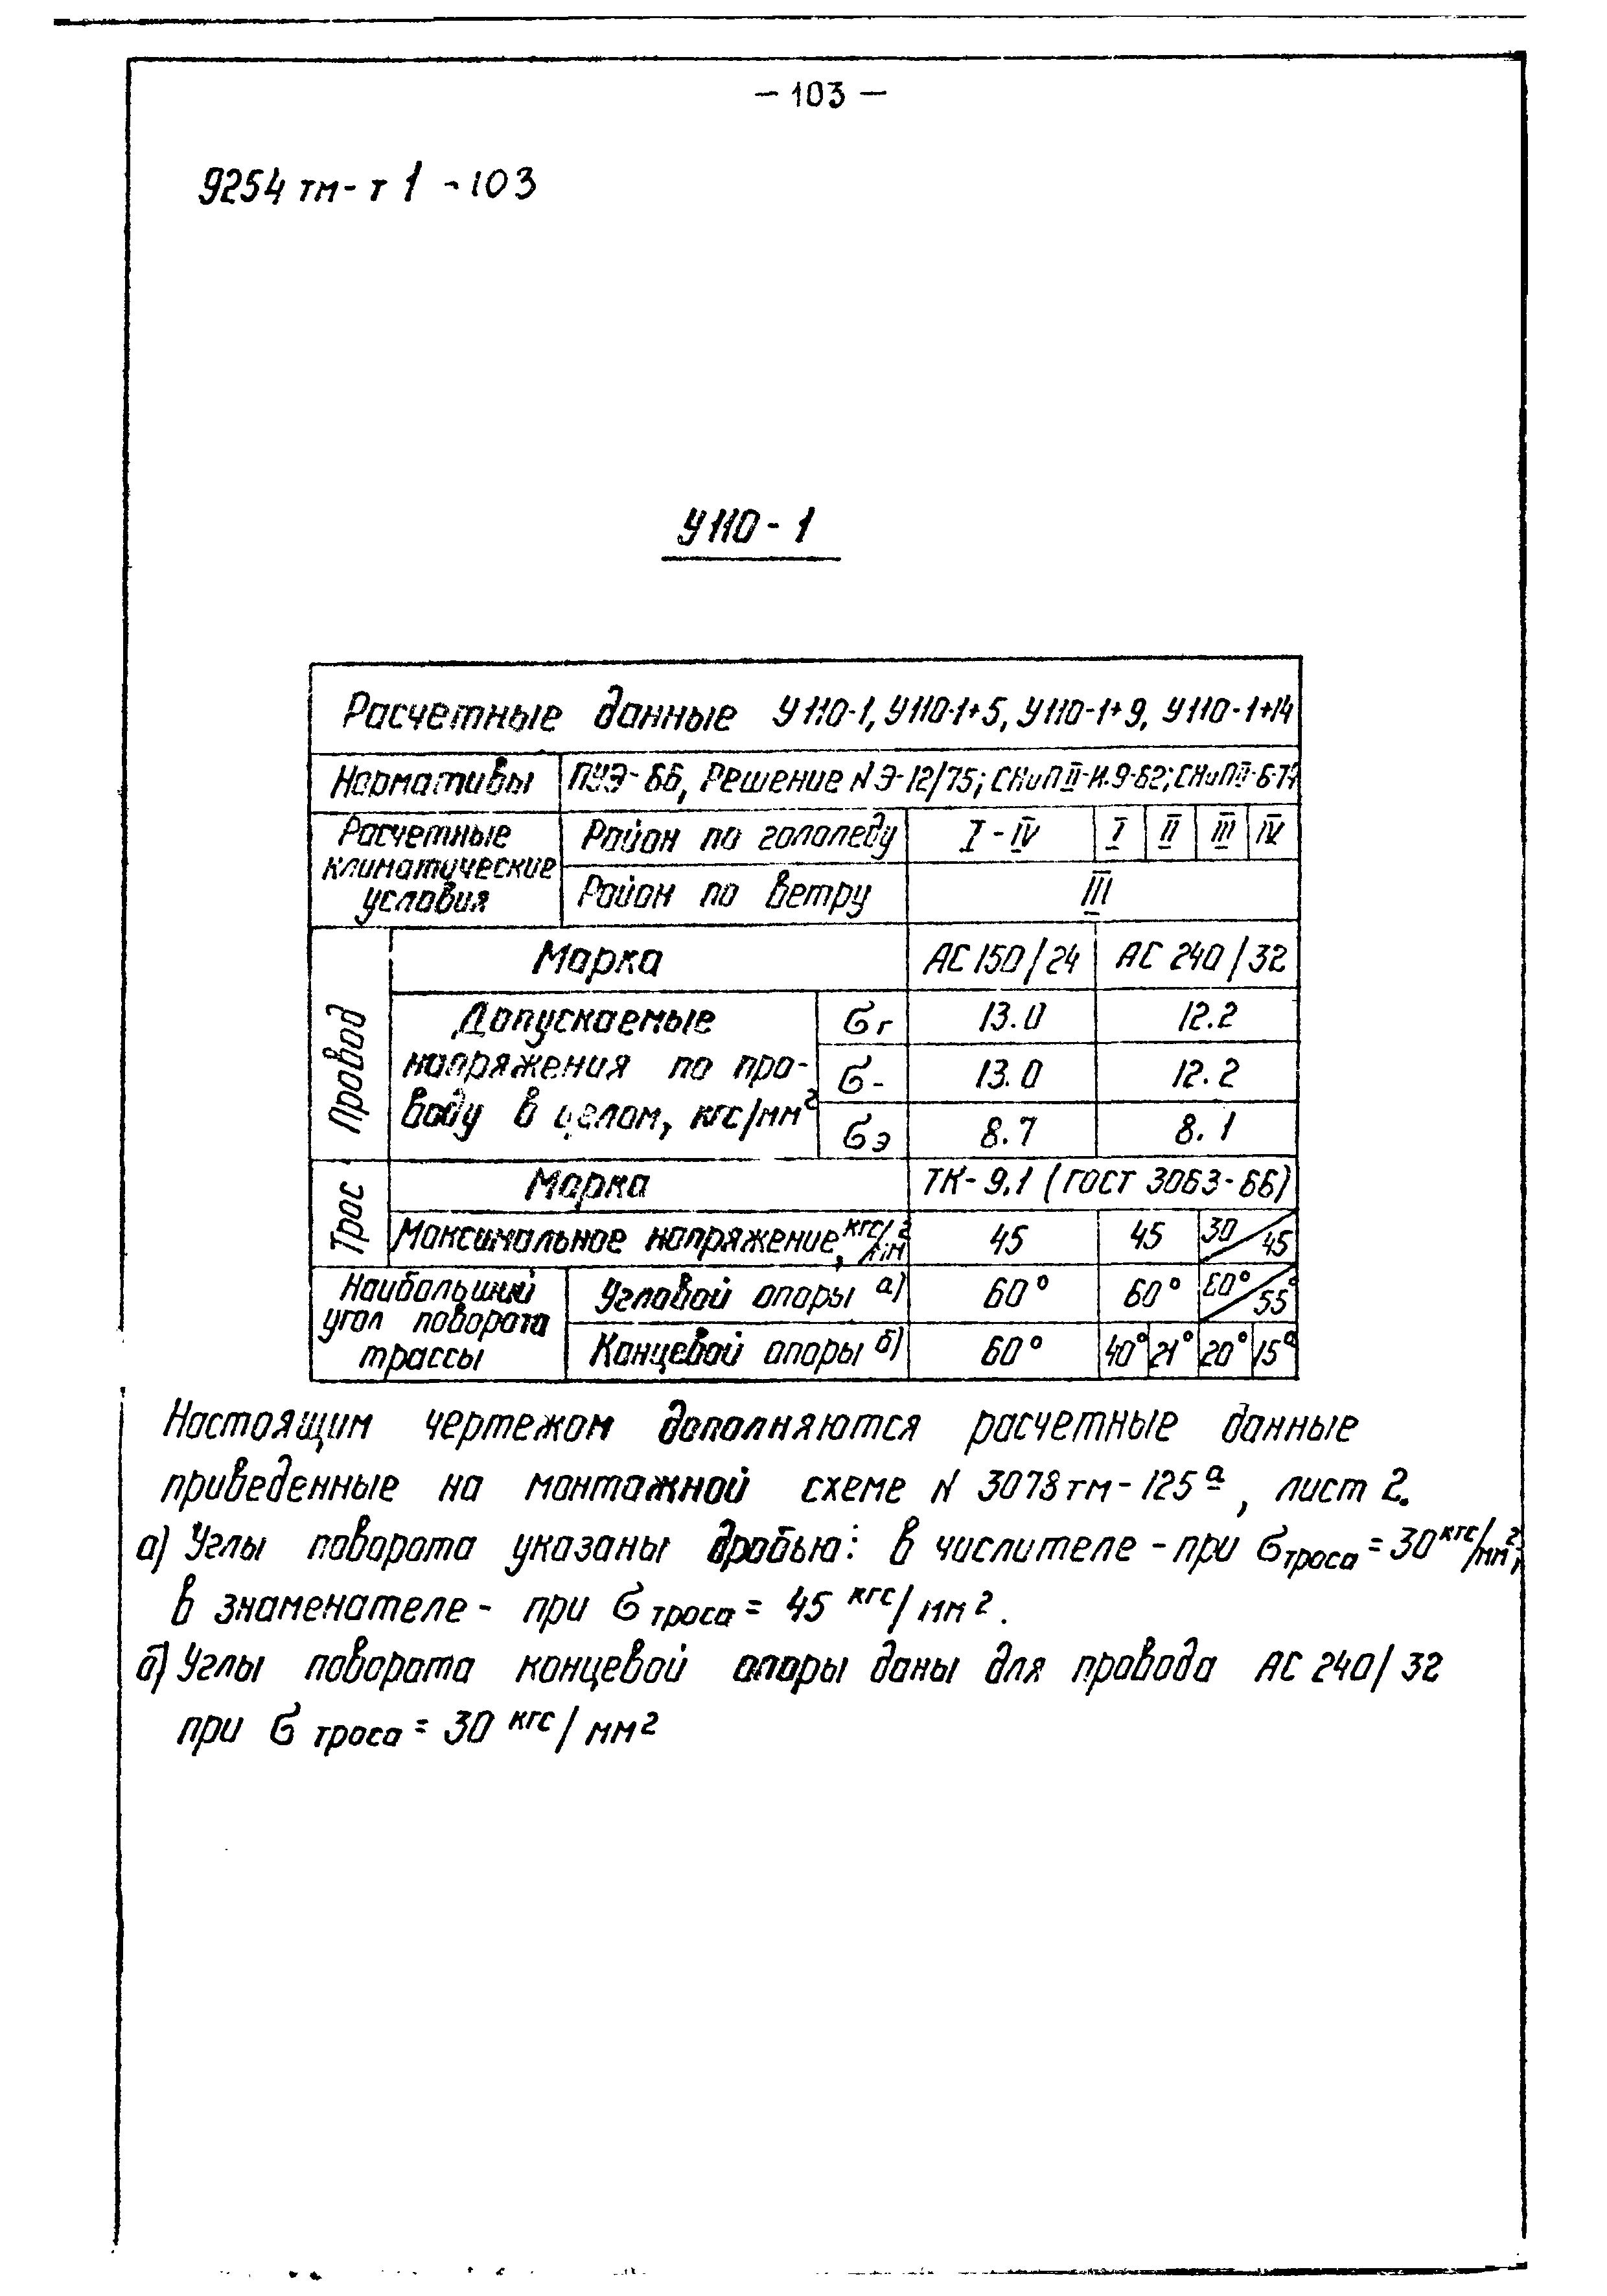 – 103 –
9254 тм-т 1 - 103
У110-1
Расчетные данные У110-1, У110-1+5, У110-1+9, У110-1+14
Нормативы ПУЭ-66, Решение N Э-12/75; СНиП II-И.9-62; СНиП II-6-74
Расчетные климатические условия Район по гололеду I-IV I II III IV
Район по ветру III
Провод Марка АС 150/24 АС 240/32
Допускаемые бг 13.0 12.2
напряжения по про- б- 13.0 12.2
воду в целом, кгс/мм² бэ 8.7 8.1
Трос Марка ТК-9.1 (ГОСТ 3063-66)
Максимальное напряжение, кгс/мм² 45 45 30/45
Наибольший угол поворота трассы Угловой опоры а) 60° 60° 60°/55°
Концевой опоры б) 60° 40° 21° 20° 15°
Настоящим чертежом дополняются расчетные данные
приведенные на монтажной схеме N 3078тм-125а, лист 2.
а) Углы поворота указаны дробью: в числителе - при бтроса = 30 кгс/мм²;
в знаменателе - при б троса = 45 кгс/мм².
б) Углы поворота концевой опоры даны для провода АС 240/32
при б троса = 30 кгс/мм²